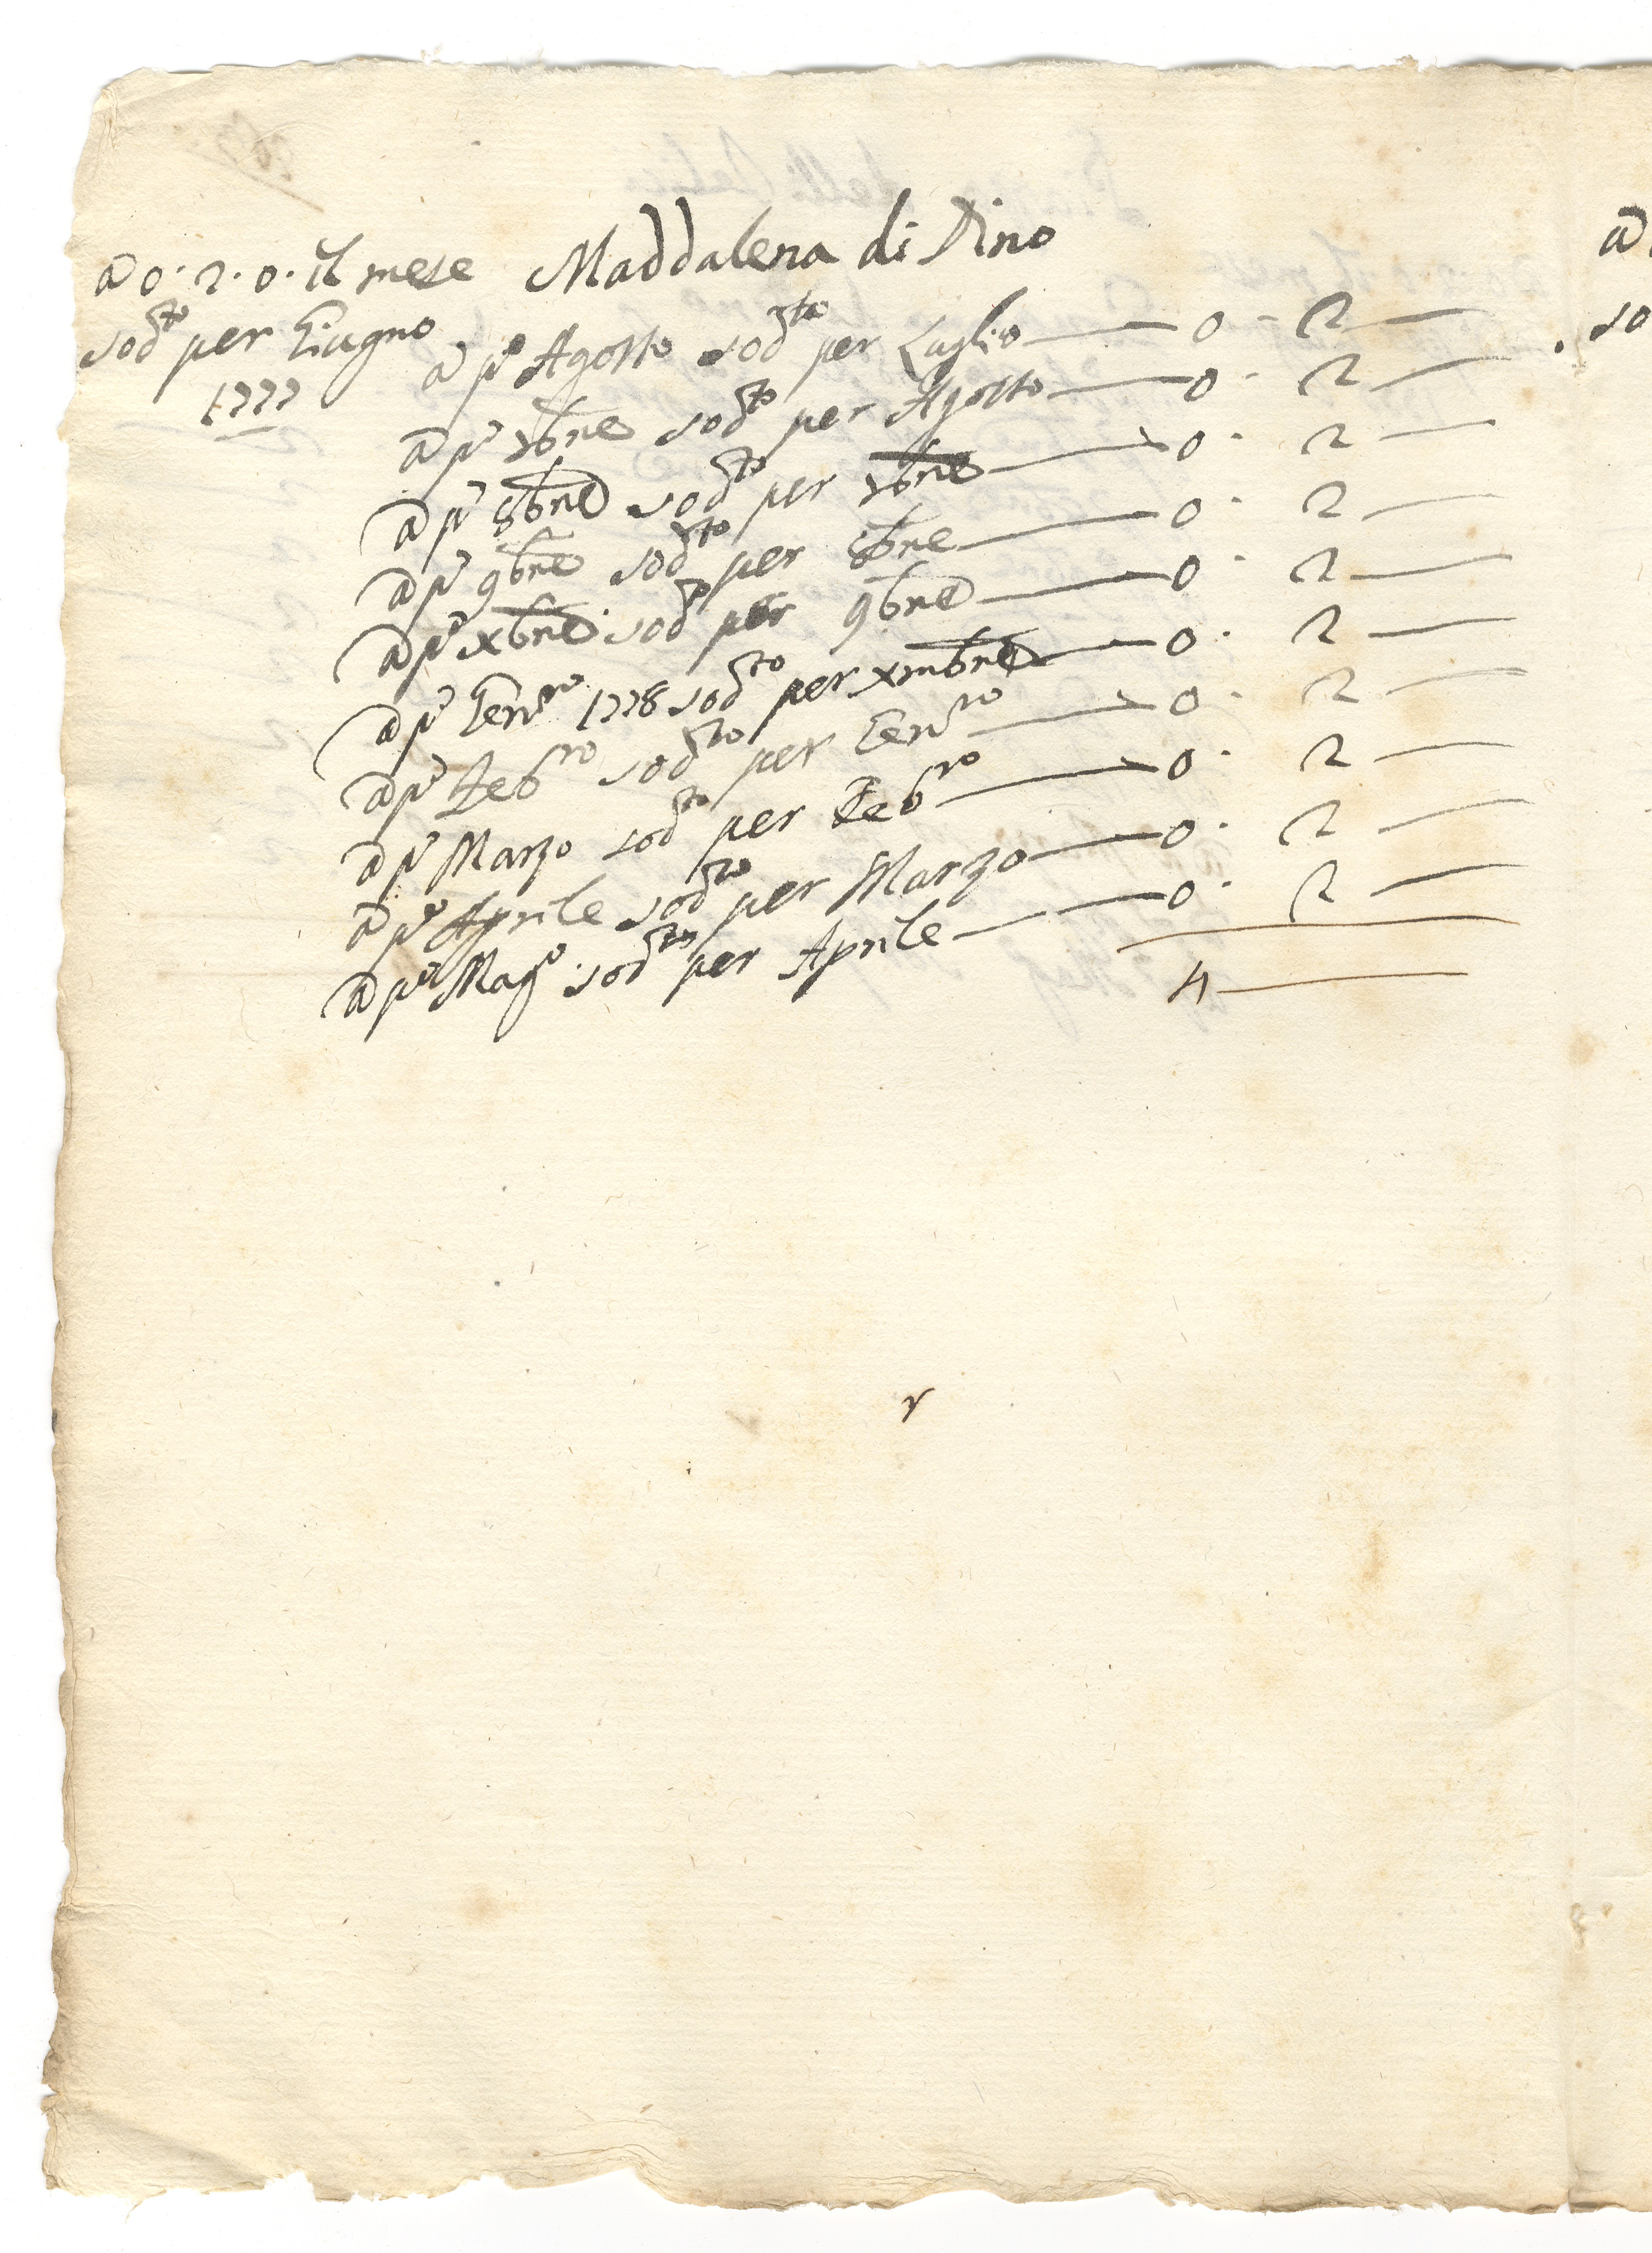 a 0. 2. 0. il mese Maddalena di Dino
sodto per Giugno
1777
a po Agosto sodto per Luglio — 0 - 2 —
a po 7bre sodto per Agosto — 0 - 2 —
a po 8bre sodto per 7bre — 0 - 2 —
a po 9bre sodto per 8bre — 0 - 2 —
a po xbre sodto per 9bre — 0 - 2 —
a po Genro 1778 sodto per xmbre — 0 - 2 —
a po Febro sodto per Genro — 0 - 2 —
a po Marzo sodto per Febro — 0 - 2 —
a po Aprile sodto per Marzo — 0 - 2 —
a po Mago sodto per Aprile — 0 - 2 —